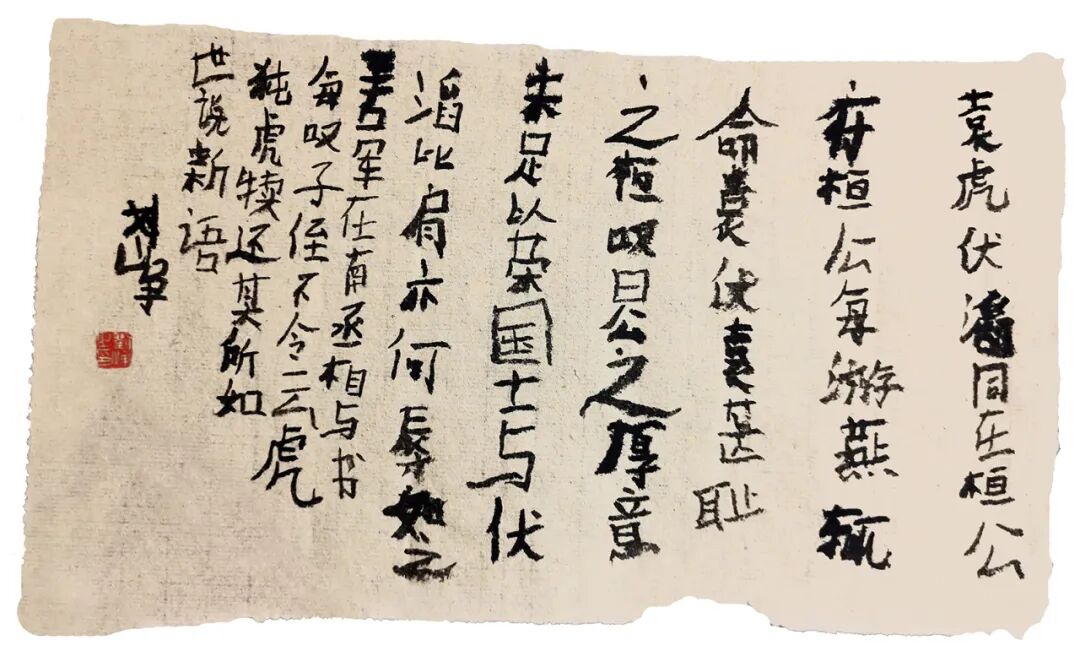 袁虎伏滔同在桓公
府桓公每游燕辄
命袁伏袁甚耻
之恒叹曰公之厚意
未足以荣国士与伏
滔比肩亦何辱如之
王右军在南丞相与书
每叹子侄不令云虎
㹠虎犊还其所如
世说新语
刘峥